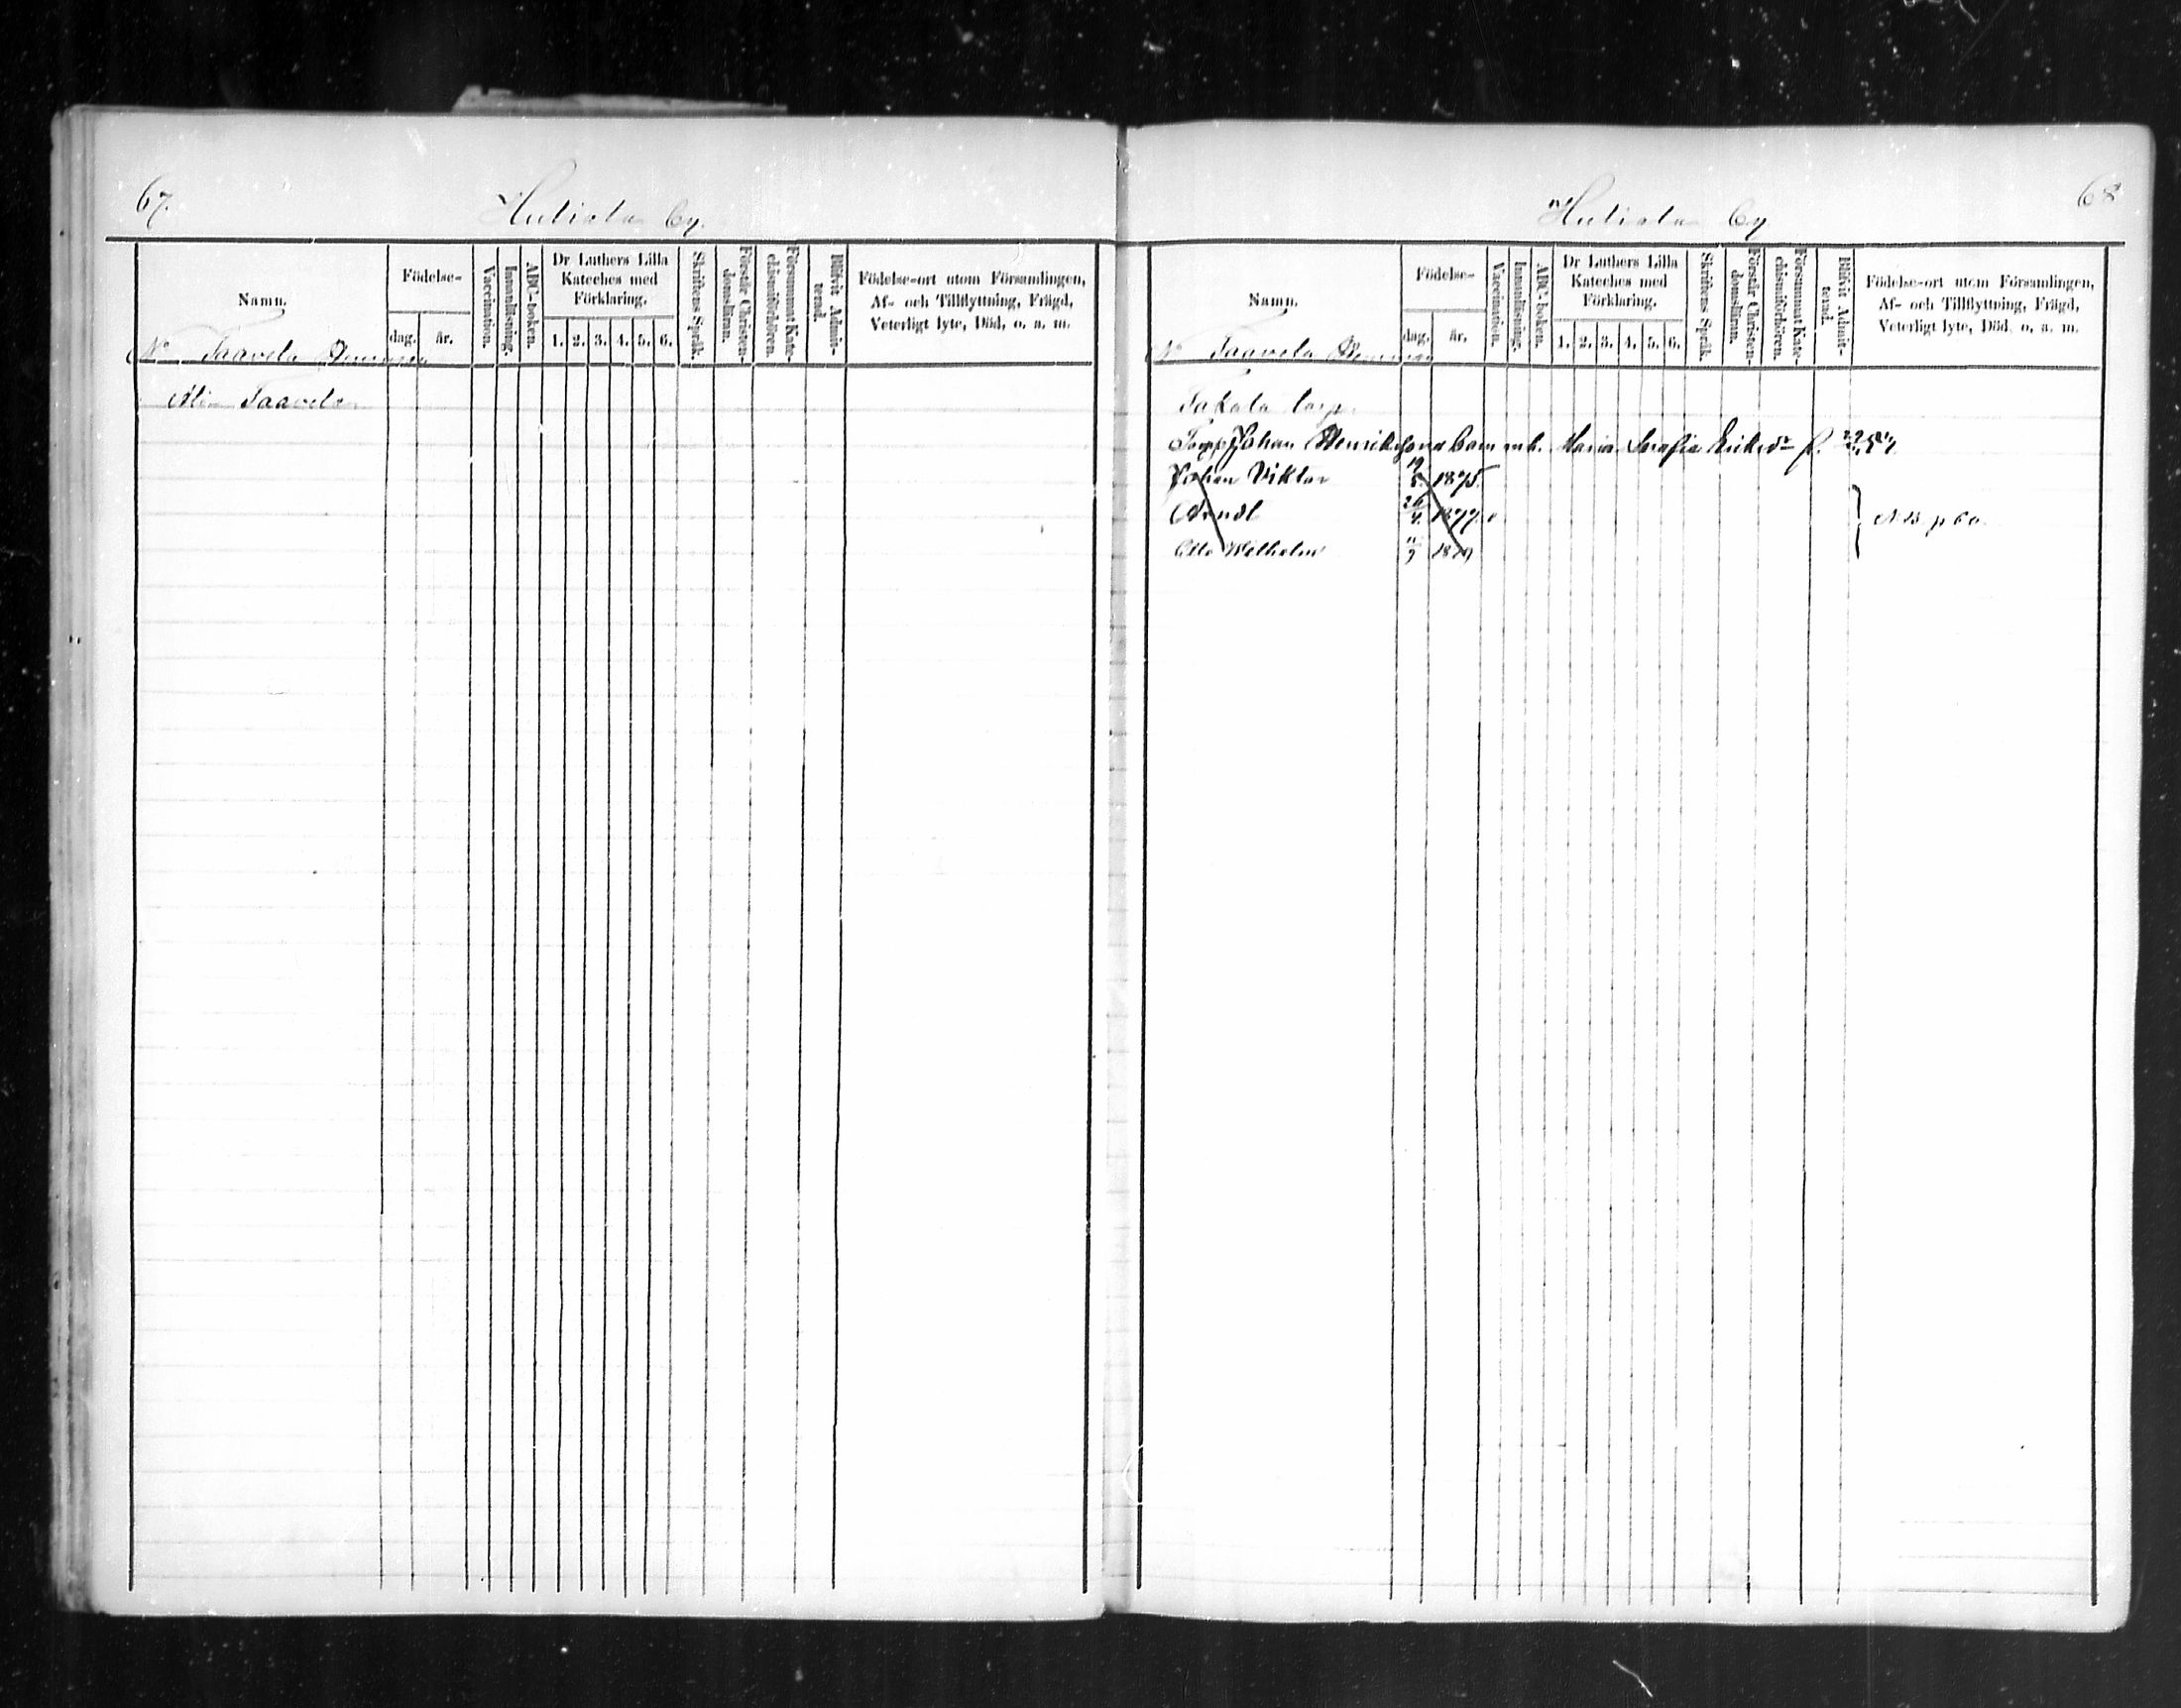 67.
Hutiala by.
Namn.
Födelse-
dag.
år.
Vaccination.
Innanläsning.
ABC-boken.
Dr Luthers Lilla
Kateches med
Förklaring.
1. 2. 3. 4. 5. 6.
Skriftens Språk.
Förstår Christen-
domsläran.
Försummat Kate-
chismiförhören.
Blifvit Admit-
terad.
Födelse-ort utom Församlingen,
Af- och Tillflyttning, Frägd,
Veterligt lyte, Död, o. s. m.
No Taavela
Ali Taavela
68
Hutiala by
Namn.
Födelse-
dag.
år.
Vaccination.
Innanläsning.
ABC-boken.
Dr Luthers Lilla
Kateches med
Förklaring.
1. 2. 3. 4. 5. 6.
Skriftens Språk.
Förstår Christen-
domsläran.
Försummat Kate-
chismiförhören.
Blifvit Admit-
terad.
Födelse-ort utom Församlingen,
Af- och Tillflyttning, Frägd,
Veterligt lyte, Död, o. s. m.
No Taavela
Takala torp
Torpp Johan Henriksons barn m. h. Maria Sersia Eriksdr f.
Johan Viktor 19/8 1875
Arndt 26/4 1877
Otto Wilhelm 11/9 1879
NB. p 60